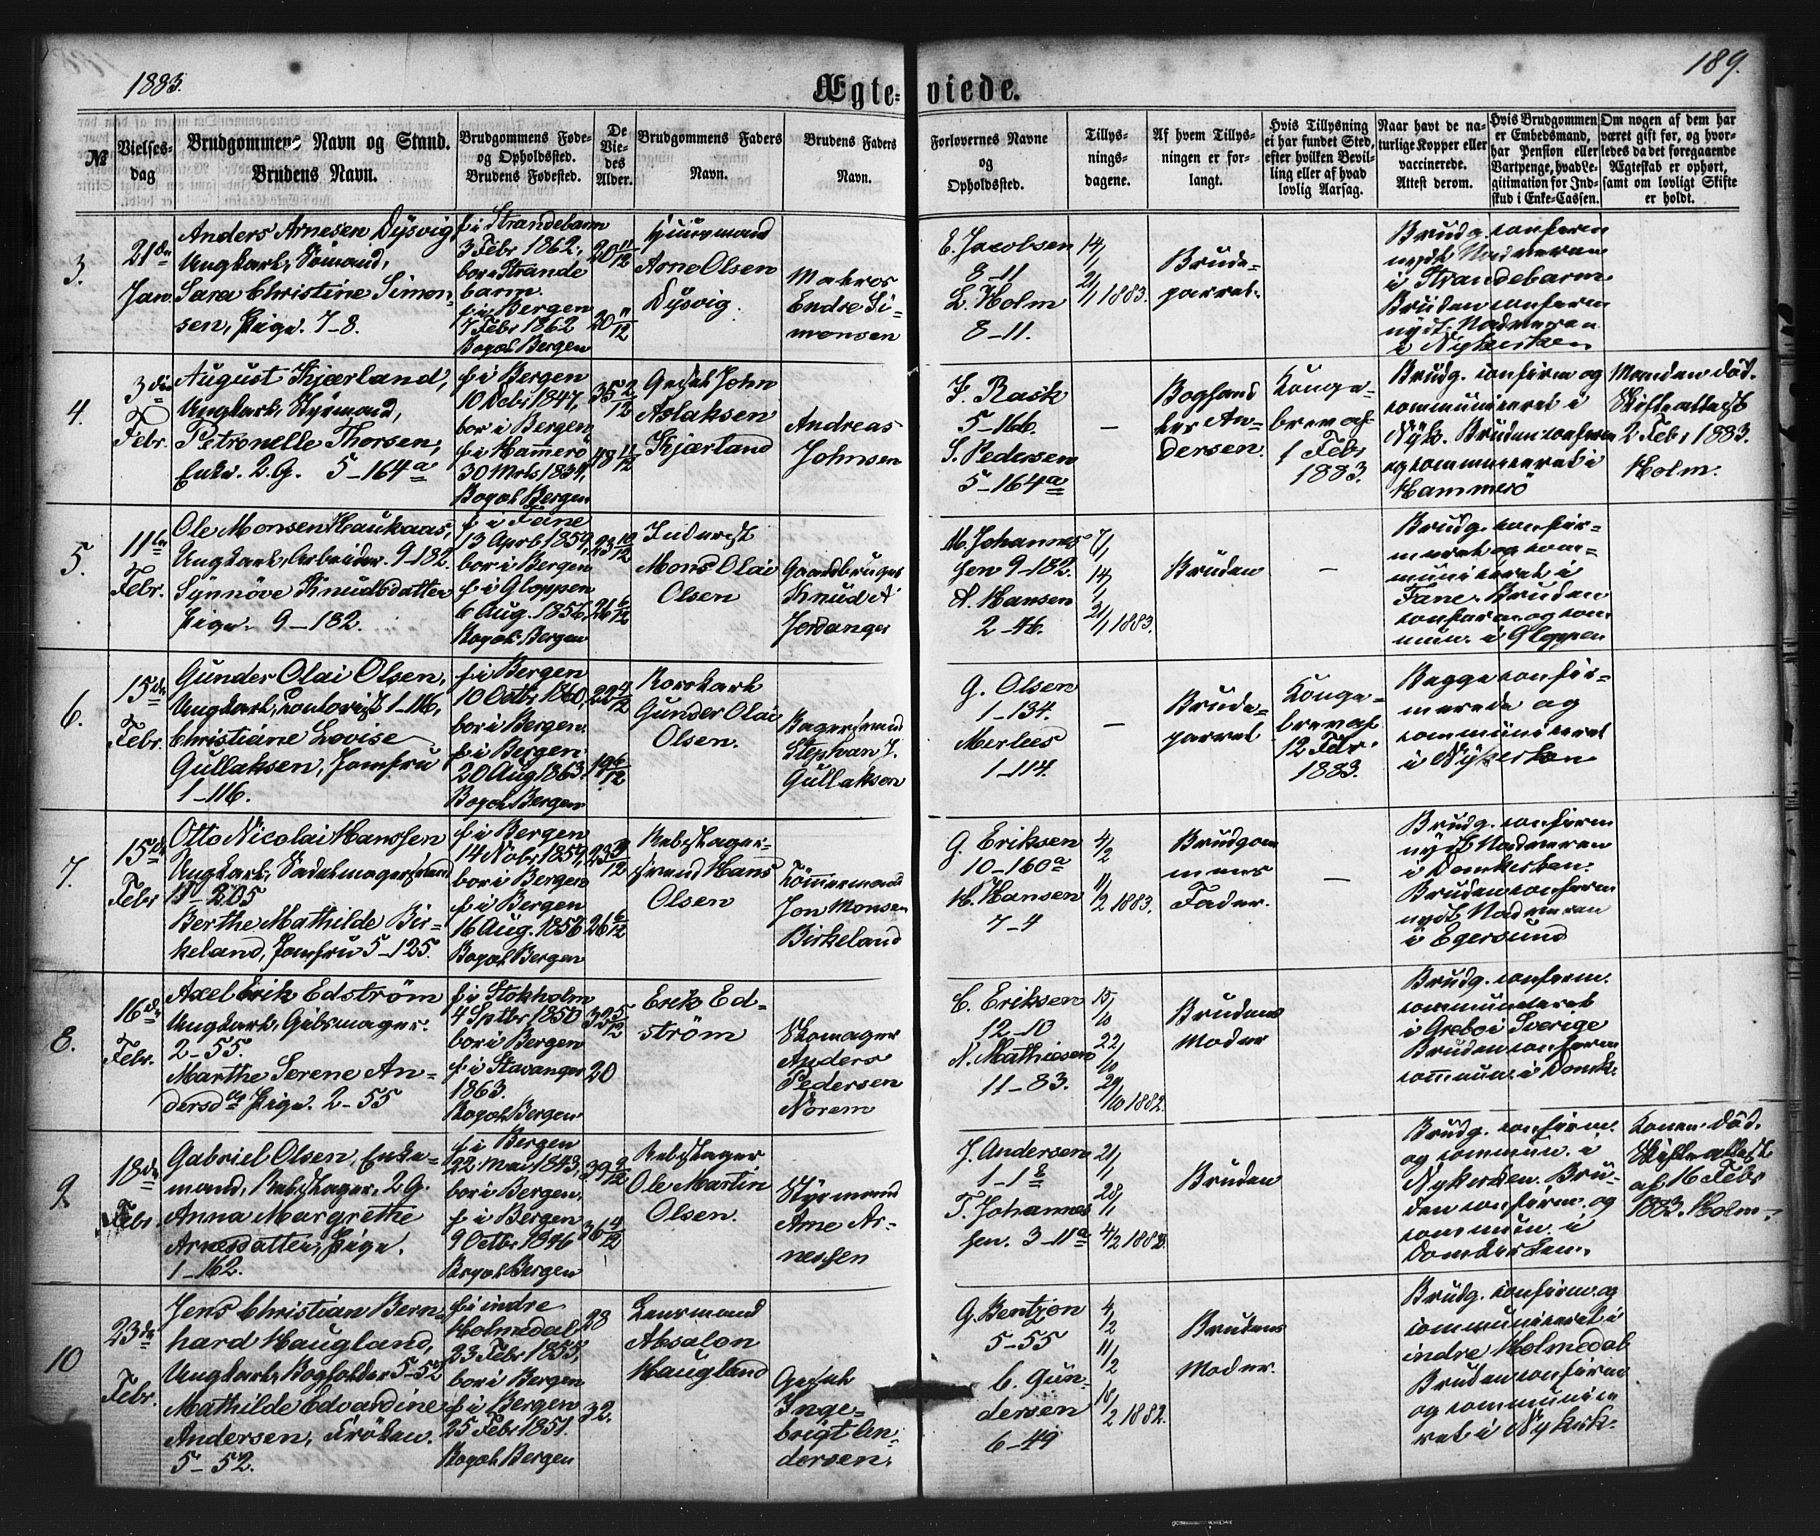 1883.
189.
Ægte-viede.
№
Vielses-
dag
Brudgommens Navn og Stand.
Brudens Navn.
Brudgommens Føde-
og Opholdssted.
Brudens Fødested.
De
Vie-
des
Alder.
Brudgommens Faders
Navn.
Brudens Faders
Navn.
Forlovernes Navne
og
Opholdssted.
Tillys-
nings-
dagene.
Af hvem Tillys-
ningen er for-
langt.
Hvis Tillysning
ei har fundet Sted,
efter hvilken Bevil-
ling eller af hvad
lovlig Aarsag.
Naar havt de na-
turlige Kopper eller
vaccinerede.
Attest derom.
Hvis Brudgommen
er Embedsmand,
har Pension eller
Vartpenge, hvad Le-
gitimation for Ind-
skud i Enke-Cassen.
Om nogen af dem har
været gift før, og hvor-
ledes da det foregaaende
Ægteskab er ophørt,
samt om lovligt Skifte
er holdt.
3.
21de
Jan.
Anders Arnesen Dysvig
Ungkarl, Sømand,
Sara Christine Simon-
sen, Pige. 7-8.
f. i Strandebarm
3 Febr 1862,
bor i Strande
barm.
f. i Bergen
7 Febr 1862
Bopæl Bergen
20 11/12
20 11/12
Huusmand
Arne Olsen
Dysvig.
Matros
Endre Si-
monsen
E. Jacobsen
8-11
L. Holm
8-11.
14/1
21/1 1883.
Brude-
parret.
Brudg. confirm
nydt Nadveren
i Strandebarm.
Bruden confirm
nydt Nadveren
i Nykirken
4.
3die
Febr.
August Kjærland,
Ungkarl, Styrmand,
Petronelle Thorsen,
Enke. 2.G. 5-164a
f. i Bergen
10 Debr 1847,
bor i Bergen
f. i Hammerö
30 Mrts 1834,
Bopæl Bergen
35 2/12
48 11/12
Gesel John
Aslaksen
Kjærland
Andreas
Johnsen
F. Rask
5-166.
S. Pedersen
5-164a
-
Boghand
ler An-
dersen.
Konge-
brev af
1 Febr
1883.
Brudg. confirm og
communiceret i
Nyk. Bruden confirm
og communiceret i
Hammerö
Manden död.
Skifteattest
2 Febr 1883.
Holm.
5.
11te
Febr.
Ole Monsen Haukaas,
Ungkarl, Arbeider. 9-182
Synnöve Knudsdatter
Pige. 9-182.
f. i Fane
13 Aprl 1859,
bor i Bergen
f. i Gloppen
6 Aug. 1856,
Bopæl Bergen
23 10/12
26 6/12
Inderst
Mons Olai
Olsen
Gaardbruger
Knud A
Jordanger
M. Johannes
sen 9-182.
A. Hansen
2-46.
7/1
14/1
21/1 1883.
Bruden
-
Brudg. confir-
meret og com-
municeret i
Fane. Bruden
confirm. og com
mun. i Gloppen
6.
15de
Febr.
Gunder Olai Olsen,
Ungkarl, Contorist 1-116,
Christiane Lovise
Gullaksen, Jomfru
1-116.
f. i Bergen
10 Octbr 1860,
bor i Bergen.
f. i Bergen
20 Aug. 1863.
Bopæl Bergen
22 4/12
19 6/12
Rorskarl
Gunder Olai
Olsen.
Bagersvend
Stephan J.
Gullaksen
G. Olsen
1-134.
Merlees
1-114.
-
Brude-
parret
Konge-
brev af
12 Febr.
1883.
Begge confir-
merede og
communiceret
i Nykirken
7.
15de
Febr
Otto Nicolai Hanssen
Ungkarl, Sadelmagersvend
15-205
Berthe Mathilde Bir-
keland, Jomfru 5-125.
f. i Bergen
14 Nobr 1859,
bor i Bergen
f. i Bergen
16 Aug. 1856
Bopæl Bergen
23 3/12
26 6/12
Rebslager-
svend Hans
Olsen
Tömmermand
Jon Monsen
Birkeland
G. Eriksen
10-160a
H. Hansen
7-4
4/2
11/2 1883.
Brudgom
mens
Fader.
-
Brudg. confirm
nydt Nadveren
i Domkirken.
Bruden confirm
nydt Nadveren
i Egersund
8.
16de
Febr.
Axel Erik Edström
Ungkarl, Gibsmager.
2-55.
Marthe Serene An-
dersdtr Pige. 2-55
f. i Stokholm
4 Septbr 1850
bor i Bergen
f. i Stavanger
1863.
Bopæl Bergen
32 5/12
20
Erik Ed-
ström
Skomager
Anders
Pedersen
Norem
C. Eriksen
12-10
N. Mathiesen
11-83.
15/10
22/10
29/10 1882.
Brudens
Moder
Brudg. confirm.
communiceret
i Grebo i Sverige
Bruden confirm
commun. i Domk.
9
18de
Febr.
Gabriel Olsen, Enke-
mand, Rebslager, 2.G.
Anna Margrethe
Arnesdatter, Pige.
1-162.
f. i Bergen
22 Mai 1843,
bor i Bergen,
f. i Bergen
9 Octbr 1846
Bopæl Bergen
39 9/12
36 4/12
Rebslager
Ole Martin
Olsen.
Styrmand
Arne Ar-
nessen
J. Andersen
T. Johannes
sen. 3-11a
21/1
28/1
4/2 1883.
Bruden
Brudg. confirm.
og commun. i
Nykirken. Bru-
den confirm. og
commun. i
Domkirken.
Konen död.
Skifteattest
af 16 Febr
1883. Holm.
10
23de
Febr.
Jens Christian Bern
hard Haugland,
Ungkarl, Bogholder 5-52
Mathilde Edvardine
Andersen, Fröken.
5-52.
f. i indre
Holmedal
23 Febr 1855,
bor i Bergen
f. i Bergen
25 Febr 1851.
Bopæl Bergen
28
32.
Lensmand
Absalon
Haugland
Gesel
Inge-
brigt An-
dersen.
G. Bentzon
5-55
C. Gun-
dersen
6-49
4/2
11/2
18/2 1882.
Brudens
Moder.
Brudg. confirm. og
communiceret i
indre Holmedal
Bruden confirm
og communice
ret i Nykirk.